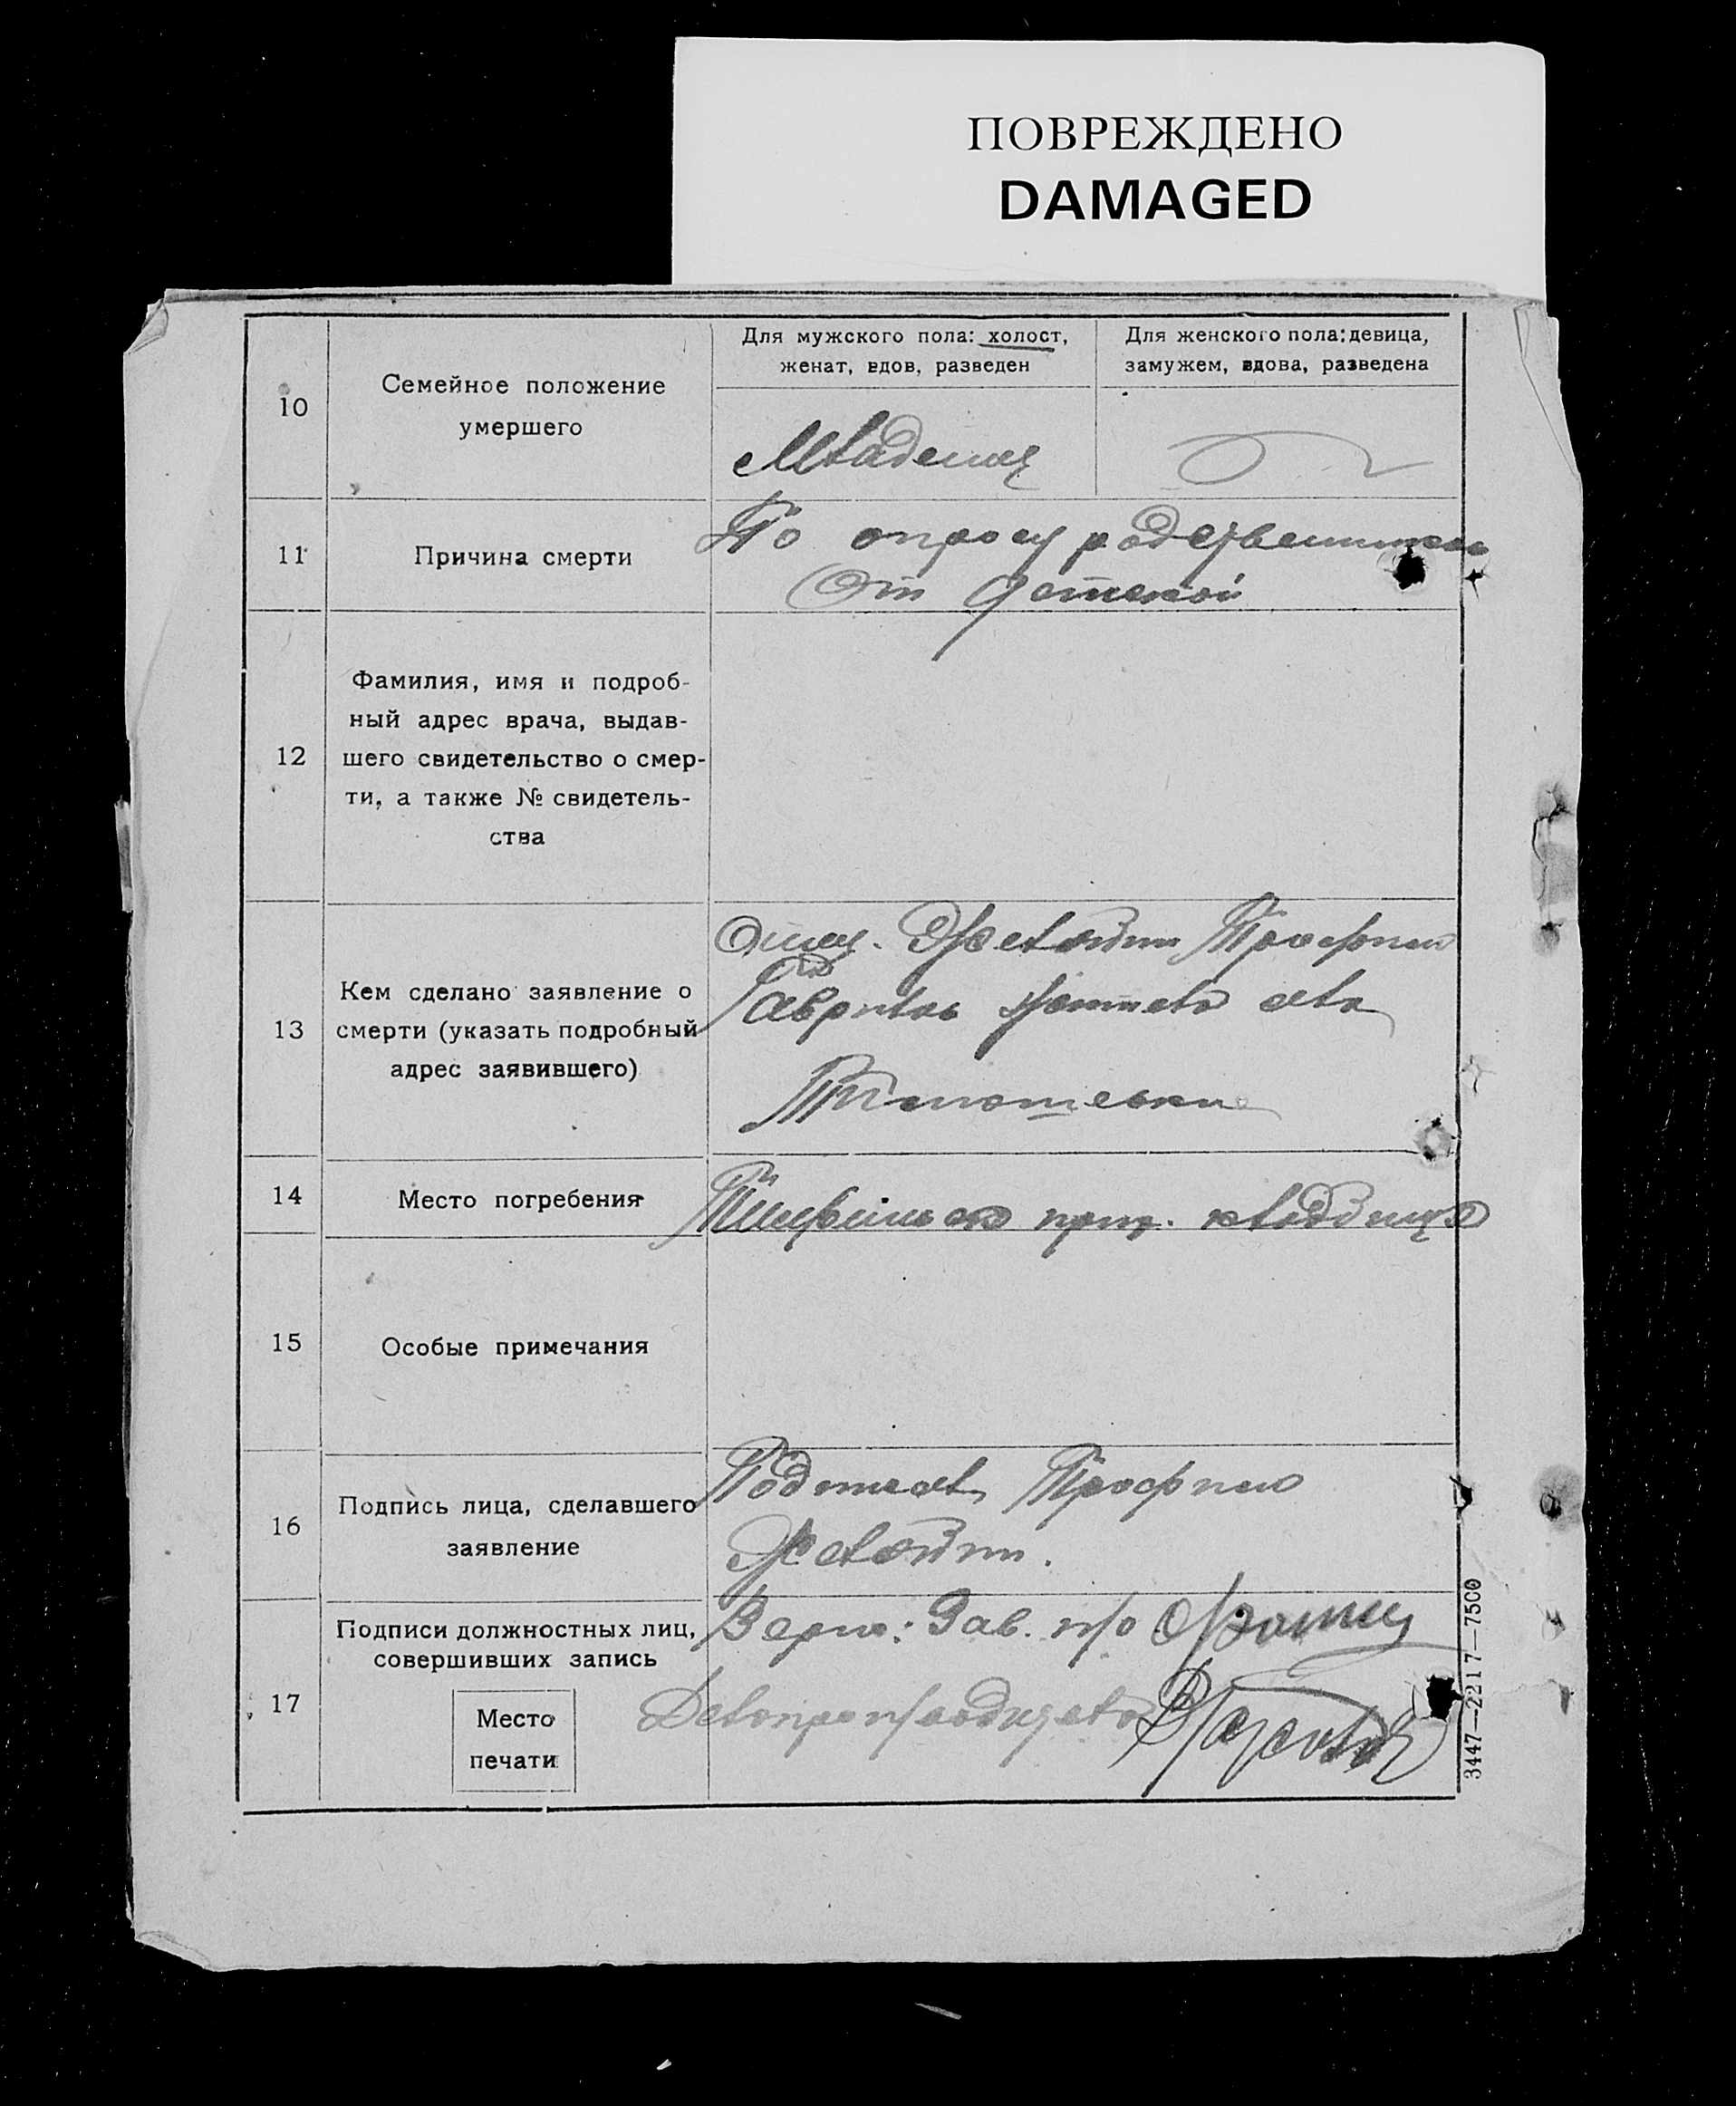 ПОВРЕЖДЕНО
DAMAGED
10
Семейное положение
умершего
Для мужского пола: холост,
женат, вдов, разведен
Для женского пола: девица,
замужем, вдова, разведена
Младенец
11
Причина смерти
По опросу родственников
От детской
12
Фамилия, имя и подроб-
ный адрес врача, выдав-
шего свидетельство о смер-
ти, а также № свидетель-
ства
13
Кем сделано заявление о
смерти (указать подробный
адрес заявившего)
Отец. Трофим
14
Место погребения
кладбище
15
Особые примечания
16
Подпись лица, сделавшего
заявление
Подписал Трофим
17
Подписи должностных лиц,
совершивших запись
Место
печати
Верно: Зав. п/о
Делопроизводитель
3447—2217—7500